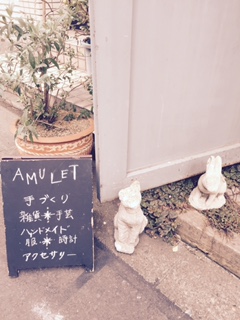 AMULET
手づくり
雑貨＊手芸
ハンドメイド
服＊時計
アクセサリー